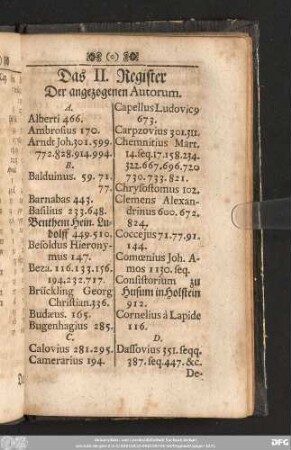 (o)
Das II. Register
Der angezogenen Autorum.
A.
Alberti 466.
Ambrosius 170.
Arndt Joh. 301. 599.
772. 828. 914. 994.
B.
Balduinus. 59. 71.
77.
Barnabas 443.
Basilius 233. 648.
Benthem Hein. Lu-
dolff 449. 510.
Besoldus Hierony-
mus 147.
Beza. 116. 133. 156.
194. 232. 717.
Brückling Georg
Christian. 336.
Budæus. 165.
Bugenhagius 285.
C.
Calovius 281. 295.
Camerarius 194.
Capellus Ludovic9
673.
Carpzovius 301. 311.
Chemnitius Mart.
14. seq. 17. 158. 234.
322. 667. 696. 720
730. 733. 821.
Chrysostomus 102.
Clemens Alexan-
drinus 600. 672.
824.
Coccejus 71. 77. 91.
144.
Comœnius Joh. A-
mos 1130. seq.
Consistorium zu
Husum in Holstein
912.
Cornelius à Lapide
116.
D.
Dassovius 351. seqq.
387. seq. 447. &c.
De-